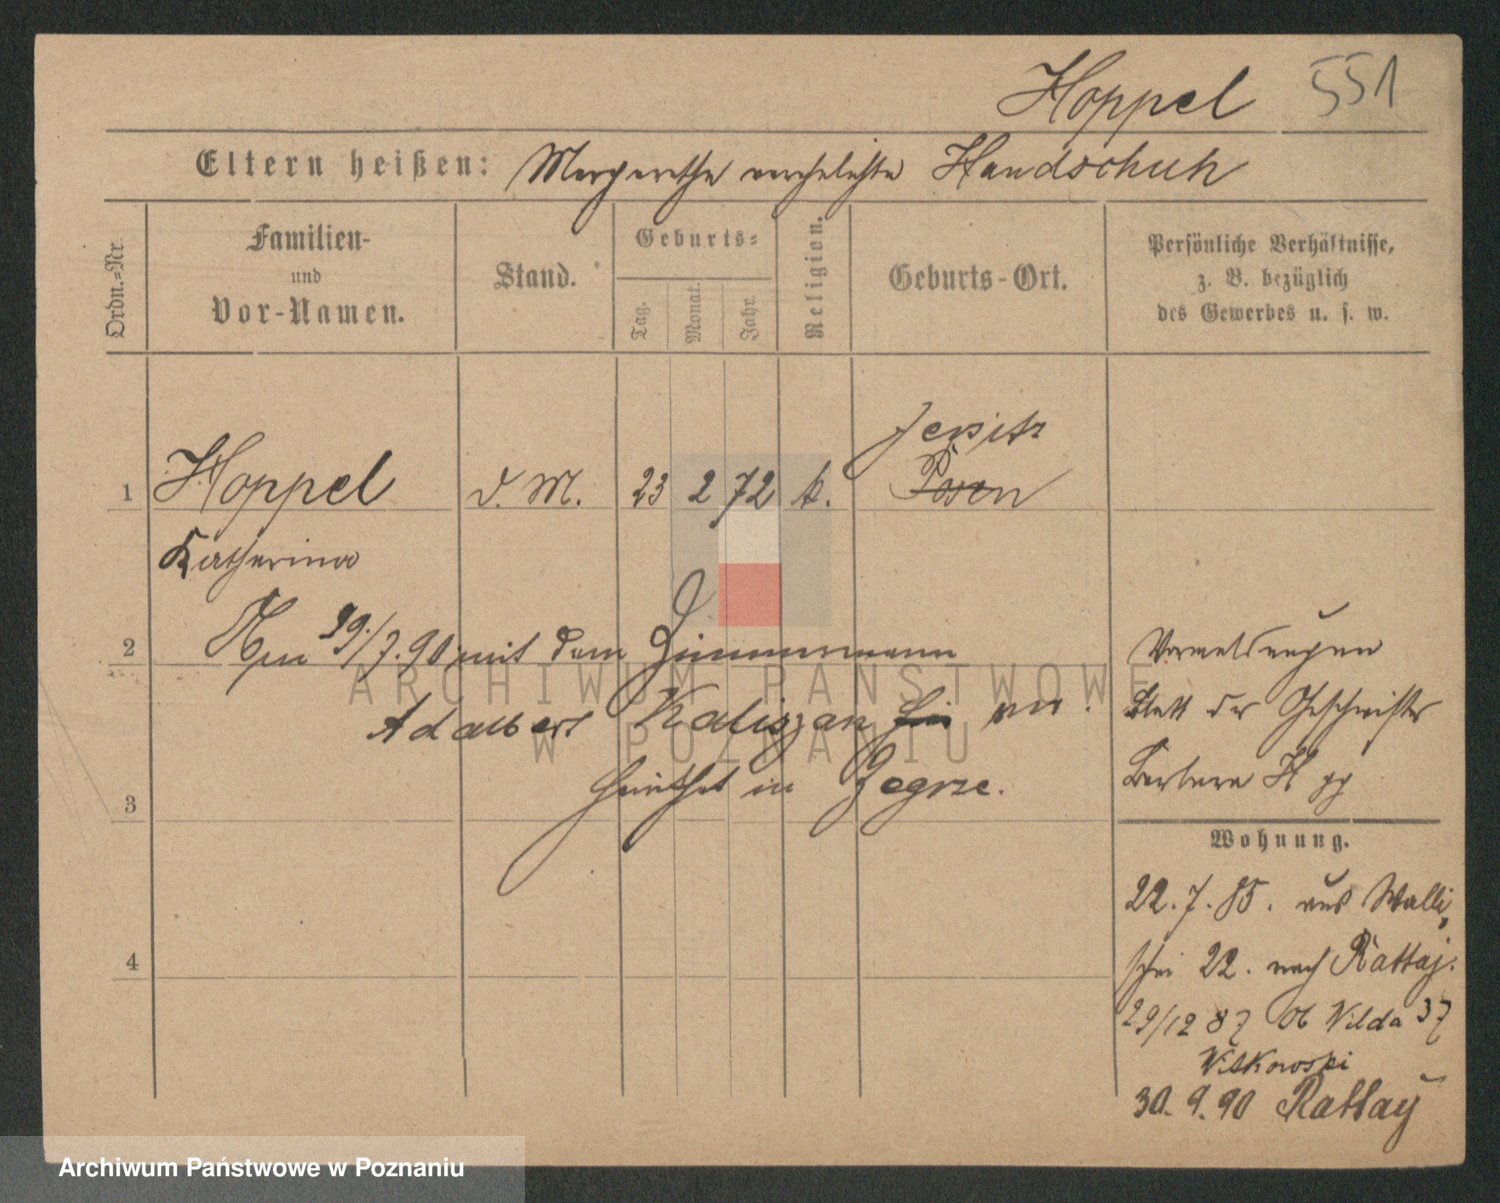 Hoppel 551
Eltern heißen: Margarethe verehelichte Handschuh
Ordn.-Nr.
Familien-
und
Vor-Namen.
Stand.
Geburts-
Tag.
Monat.
Jahr.
Religion.
Geburts-Ort.
Persönliche Verhältnisse,
z. B. bezüglich
des Gewerbes u. s. w.
Jersitz
1 Hoppel d. M. 23 2 72 k. Posen
Katharina
2 Am 29/7.90 mit dem Zimmermann
Adalbert Kaliszan ver:
heirathet in Zegrze.
Vormeldungen
Blatt der Geschwister
Barbara H
3
Wohnung.
22.7.85. aus Walli
schei 22. nach Rattaj.
4
29/12 87 Ob Wilda 37
Witkowski
30.9.90 Rattay
ARCHIWUM PAŃSTWOWE
W POZNANIU
Archiwum Państwowe w Poznaniu